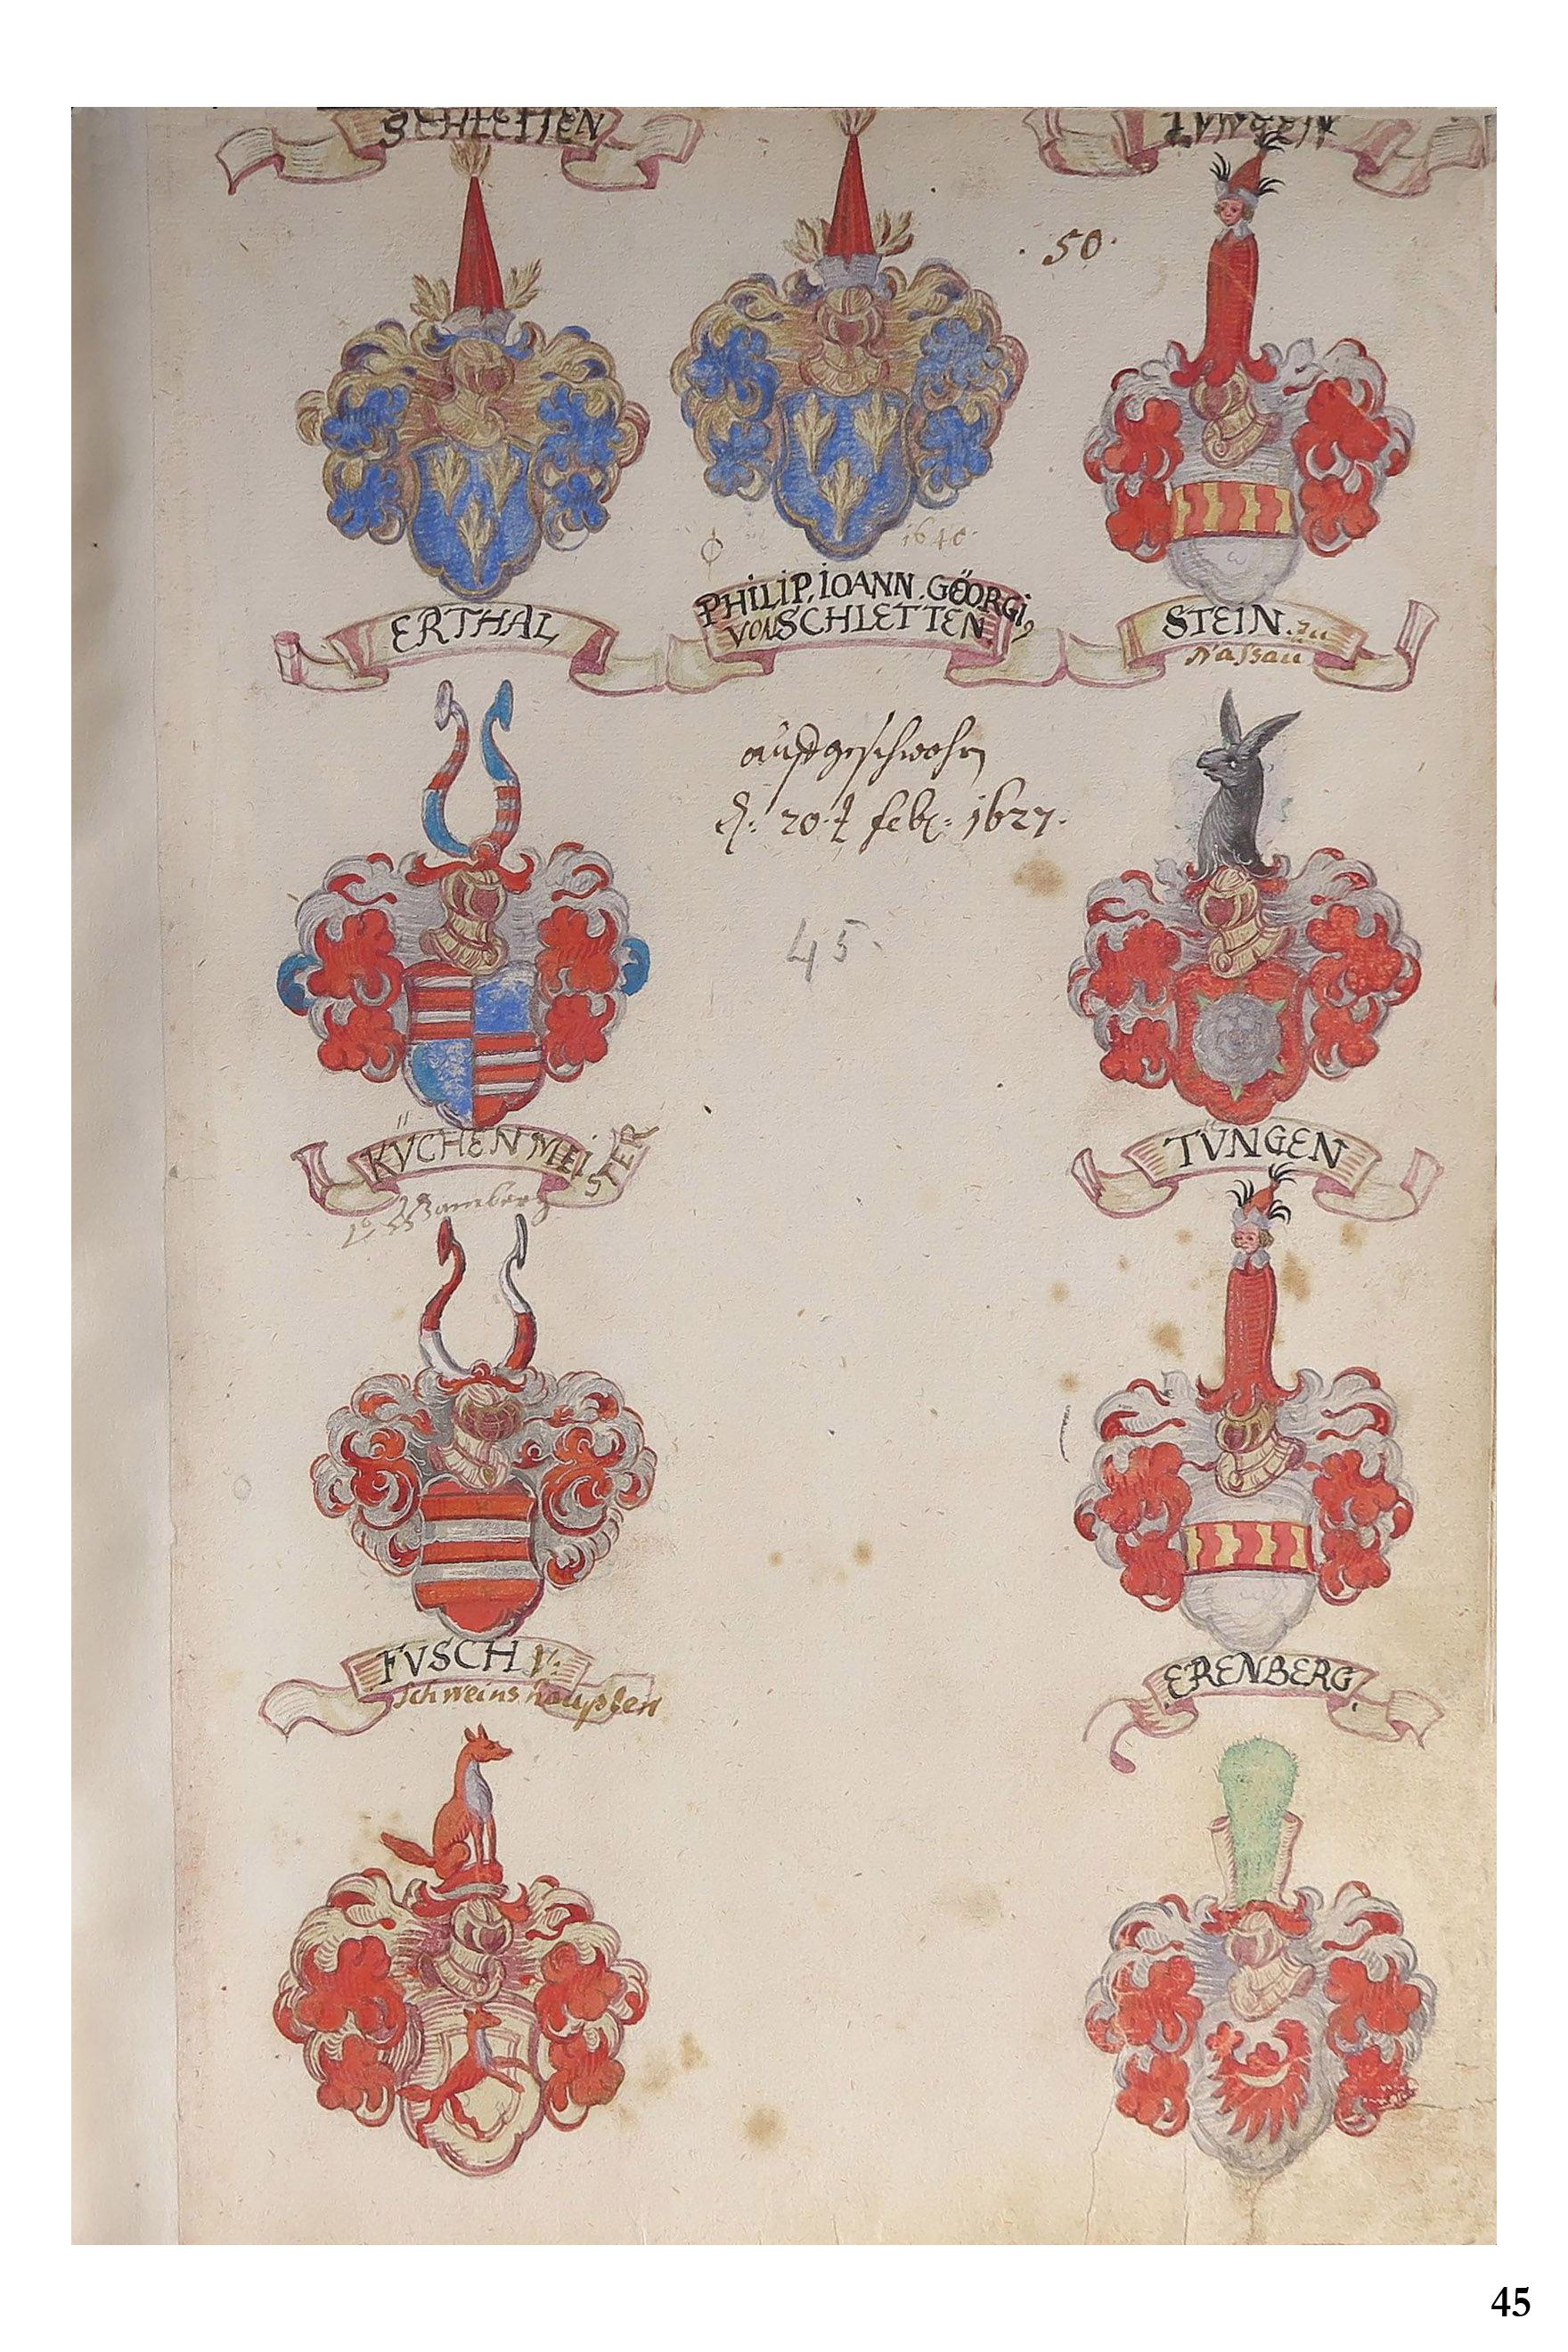 SCHLETTEN
TVNGEN
.50.
1640.
ERTHAL
PHILIP. IOANN. GEÖRGI9
VON SCHLETTEN.
STEIN. zu
Nassau
auffgeschwohrn
d: 20.t feb: 1627.
45.
KÜCHENMEISTER
Bamberg
TVNGEN
FVSCH V:
Schweinshaupten
ERENBERG
45